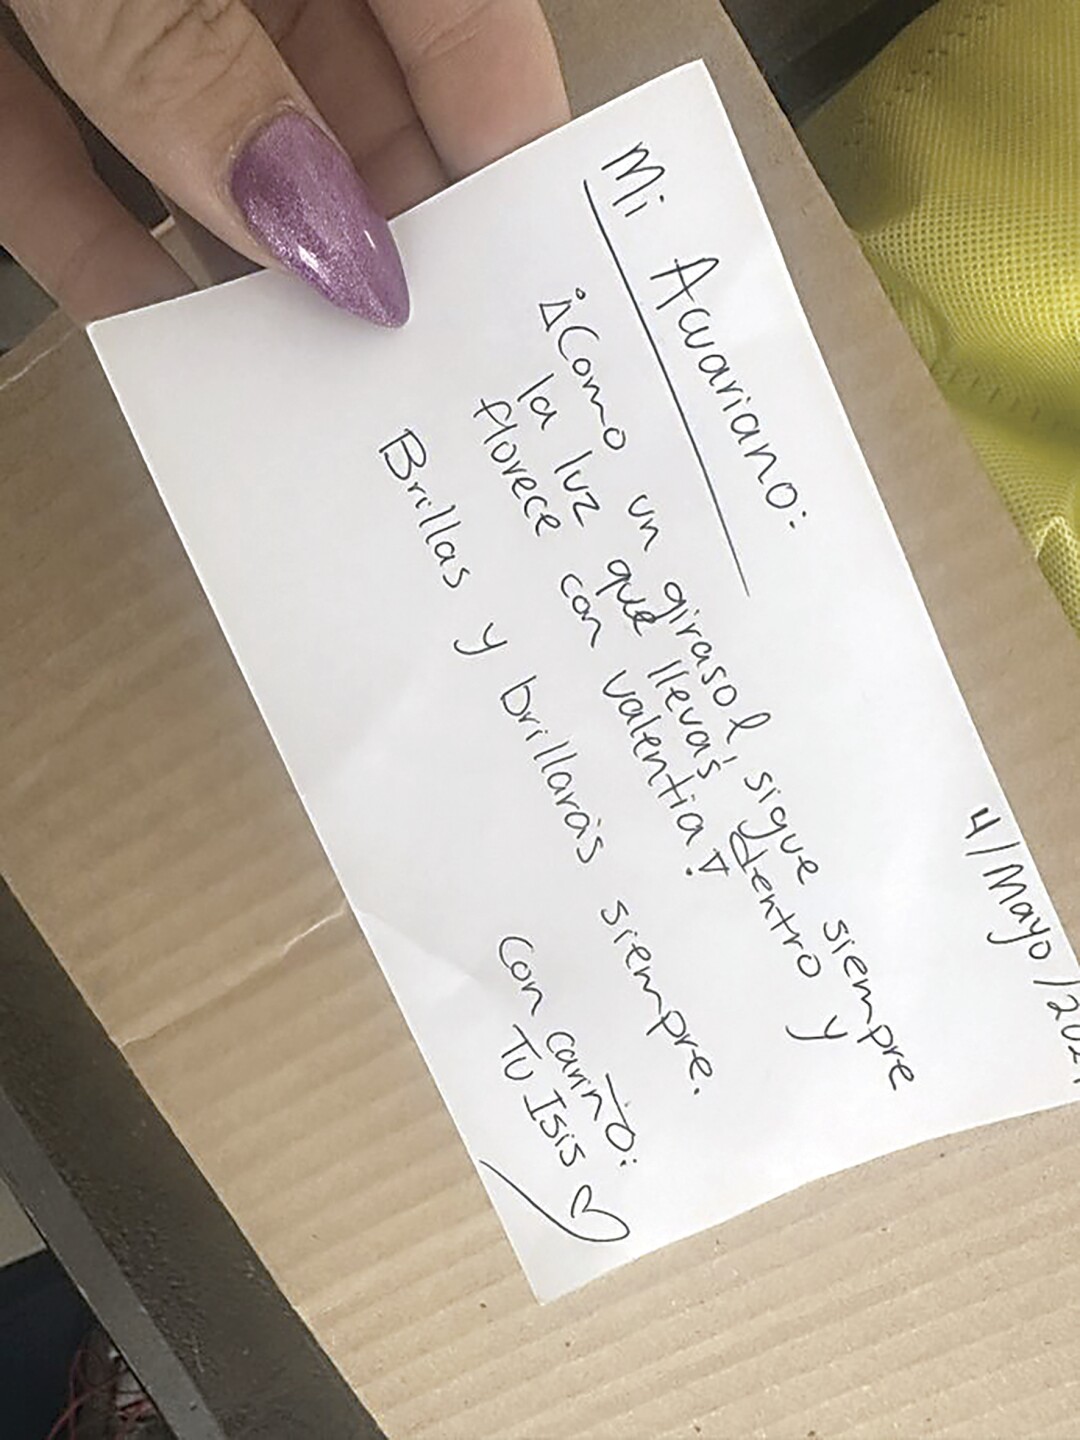 4/Mayo/202
Mi Acuariano:
¡Como un girasol, sigue siempre
la luz que llevas dentro y
florece con valentia!
Brillas y brillarás siempre.
Con cariño:
Tu Isis ♡